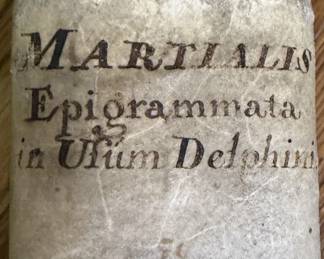 MARTIALIS
Epigrammata
in Uſum Delphini.